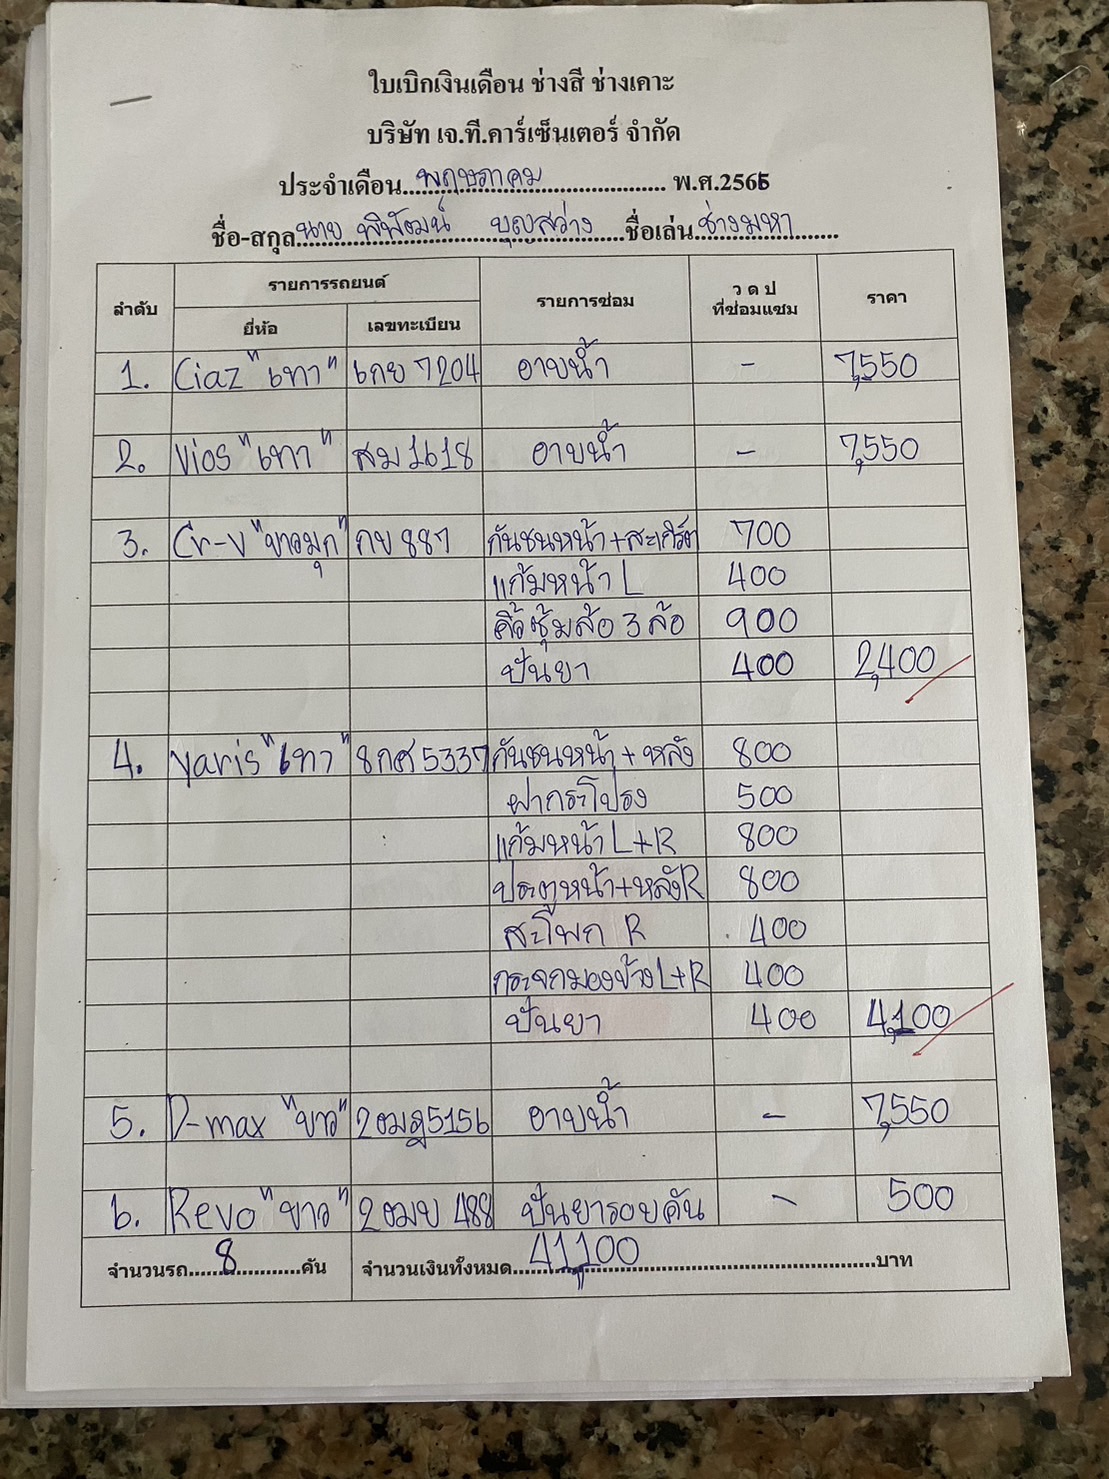 ใบเบิกเงินเดือน ช่างสี ช่างเคาะ
บริษัท เจ.ที.คาร์เซ็นเตอร์ จำกัด
ประจำเดือน...พฤษภาคม...พ.ศ.2566
ชื่อ-สกุล นาย พิพัฒน์ บุญสว่าง ชื่อเล่น ช่างมหา
ลำดับ รายการรถยนต์ รายการซ่อม ว ด ป ที่ซ่อมแซม ราคา
ยี่ห้อ เลขทะเบียน
1. Ciaz "เทา" 6กย 7204 อาบน้ำ - 7,550
2. Vios "เทา" สม 1618 อาบน้ำ - 7,550
3. Cr-v "ขาวมุก" กข 887 กันชนหน้า+สะเกิร์ต 700
แก้มหน้า L 400
คิ้วซุ้มล้อ 3 ล้อ 900
ปั่นยา 400 2,400
4. yaris "เทา" 8กศ 5337 กันชนหน้า + หลัง 800
ฝากระโปรง 500
แก้มหน้า L+R 800
ประตูหน้า+หลังR 800
สะโพก R 400
กระจกมองข้าง L+R 400
ปั่นยา 400 4,100
5. D-max "ขาว" 2ฒฎ5156 อาบน้ำ - 7,550
6. Revo "ขาว" 2ฒข 488 ปั่นยารอบคัน - 500
จำนวนรถ...8...คัน จำนวนเงินทั้งหมด...41,100...บาท